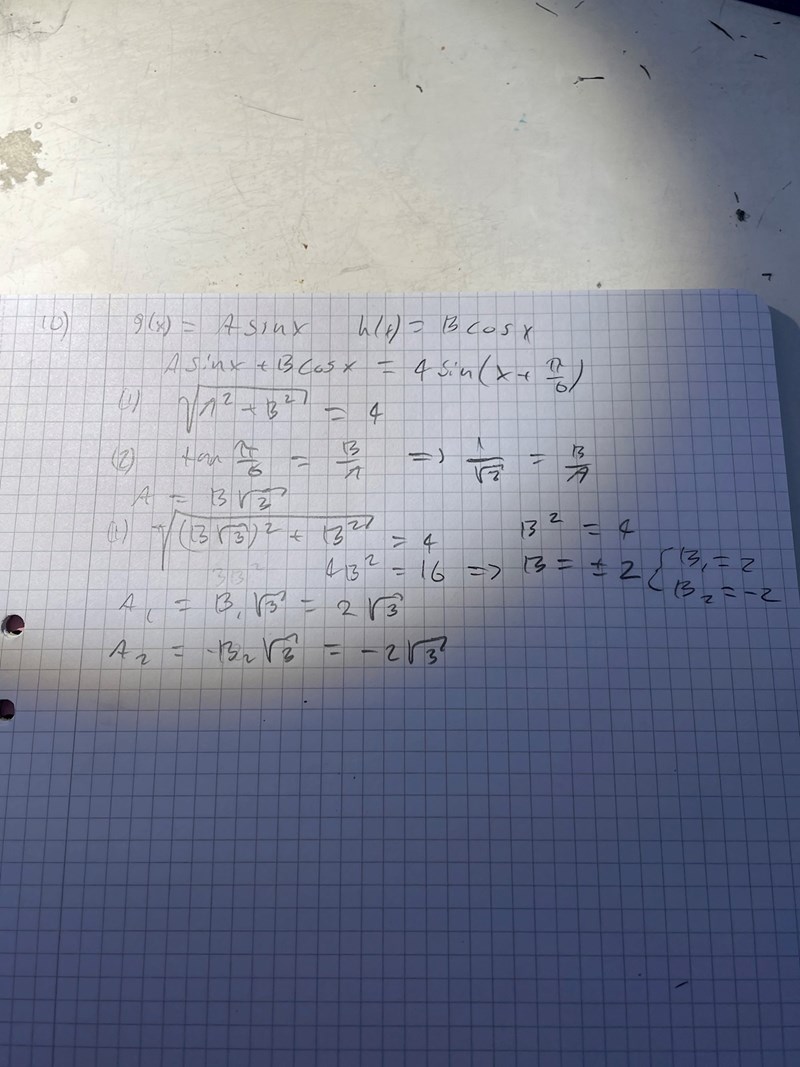 10) g(x) = A sin x h(x) = B cos x
A sin x + B cos x = 4 sin(x + π/6)
(1) √(A² + B²) = 4
(2) tan π/6 = B/A => 1/√3 = B/A
A = B√3
(1) √((B√3)² + B²) = 4 B² = 4
3B² 4B² = 16 => B = ±2 { B₁ = 2
B₂ = -2
A₁ = B₁√3 = 2√3
A₂ = B₂√3 = -2√3